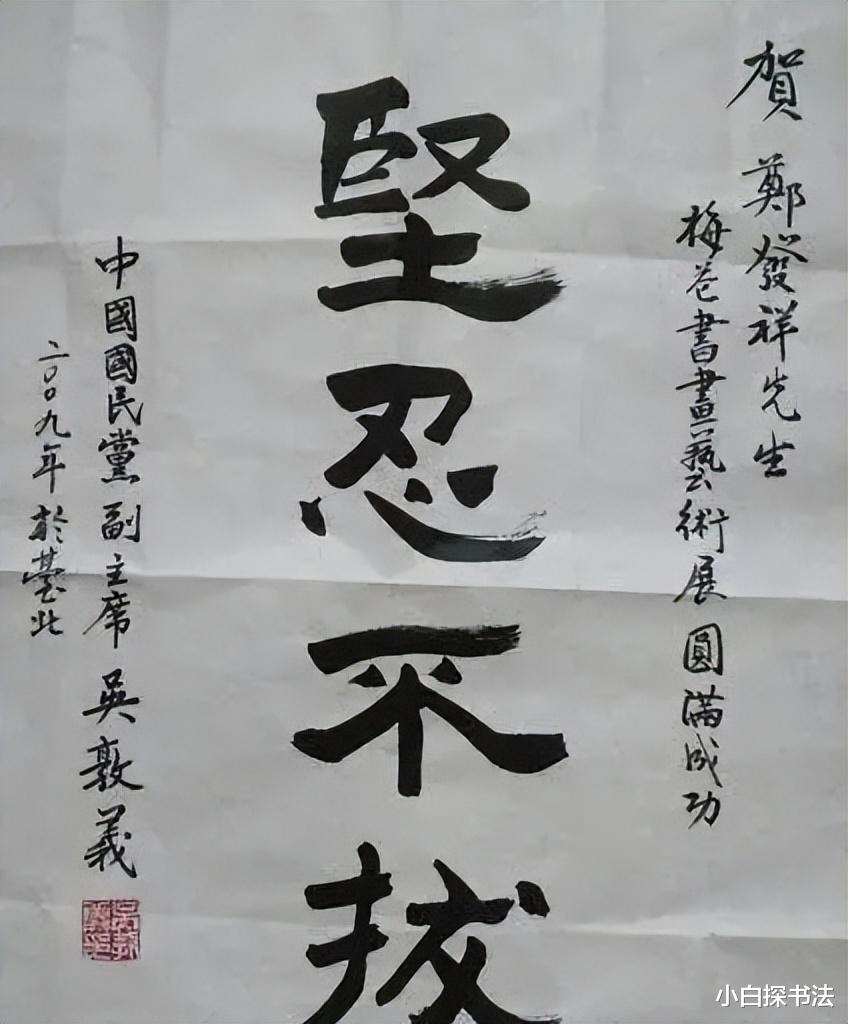 賀 鄭發祥先生
梅苍書畫藝術展 圓滿成功
堅忍不拔
中國國民黨副主席 吳敦義
二〇〇九年於臺北
小白探书法